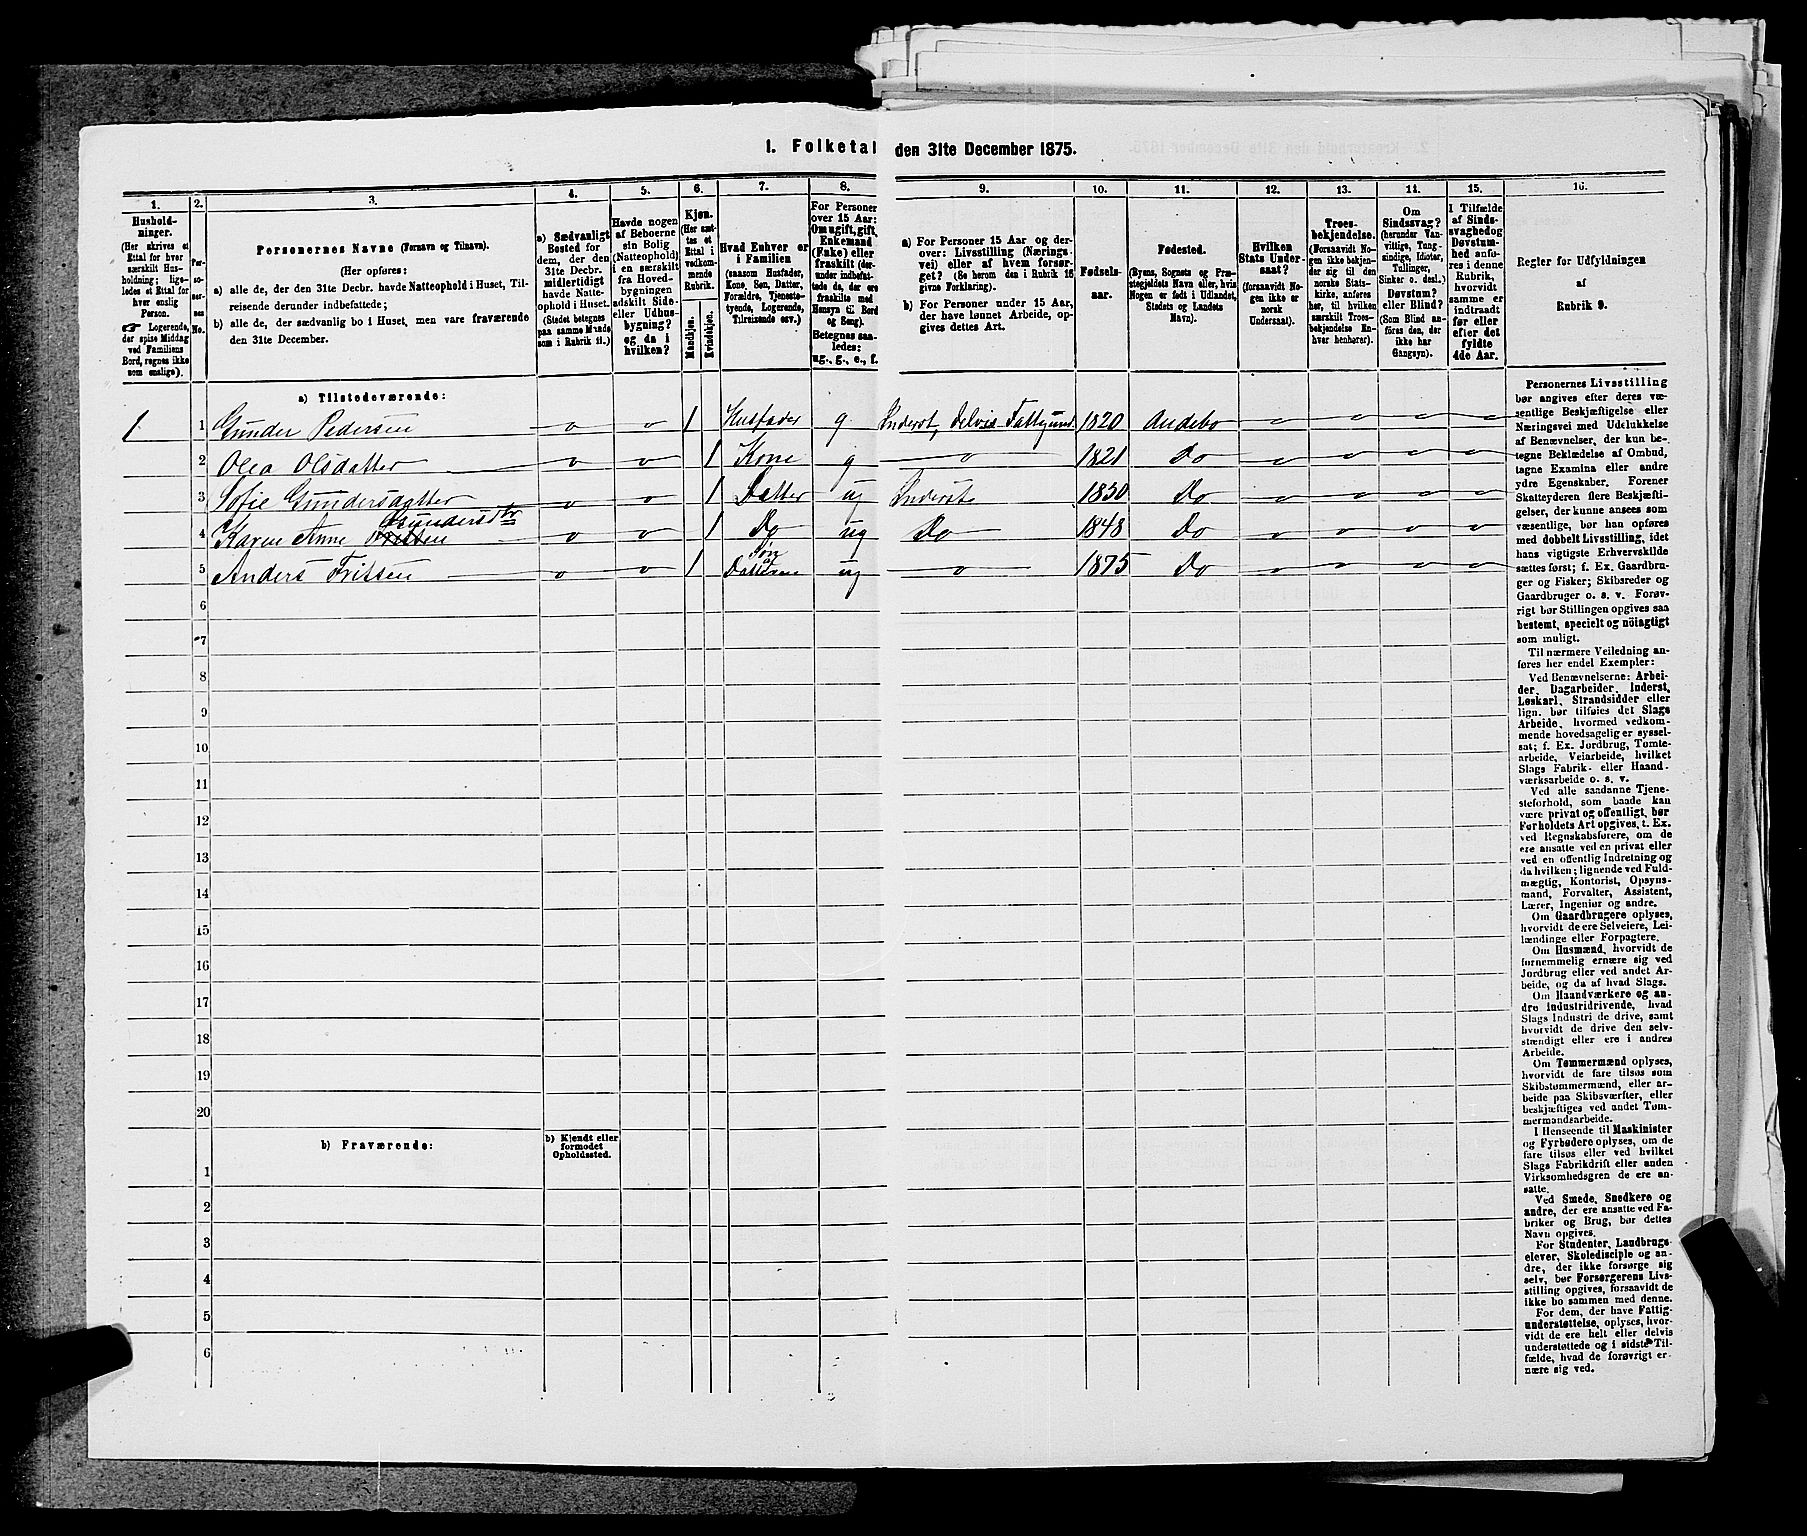 1. Folketal den 31te December 1875.
1. 2. 3. 4. 5. 6. 7. 8. 9. 10. 11. 12. 13. 14. 15. 16.
Hushold-
ninger.
(Her skrives et
Ettal for hver
særskilt Hus-
holdning; lige-
ledes et Ettal for
hver enslig
Person.
☞ Logerende,
der spise Middag
ved Familiens
Bord, regnes ikke
som enslige).
Per-
so-
ner-
nes
No.
Personernes Navne (Fornavn og Tilnavn).
(Her opføres:
a) alle de, der den 31te Decbr. havde Natteophold i Huset, Til-
reisende derunder indbefattede;
b) alle de, der sædvanlig bo i Huset, men vare fraværende
den 31te December.
a) Sædvanligt
Bosted for
dem, der den
31te Decbr.
midlertidigt
havde Natte-
ophold i Huset.
(Stedet betegnes
paa samme Maade
som i Rubrik 11.)
Havde nogen
af Beboerne
sin Bolig
(Natteophold)
i en særskilt
fra Hoved-
bygningen
adskilt Side-
eller Udhus-
bygning?
og da i
hvilken?
Kjøn.
(Her sæt-
tes et
Ettal i
vedkom-
mende
Rubrik.
Mandkjøn.
Kvindekjøn.
Hvad Enhver er
i Familien
(saasom Husfader,
Kone, Søn, Datter,
Forældre, Tjeneste-
tyende, Logerende,
Tilreizende osv.)
For Personer
over 15 Aar:
Om ugift, gift,
Enkemand
(Enke) eller
fraskilt (der-
under indbefat-
tede de, der ere
fraskilte med
Hensyn til Bord
og Seng).
Betegnes saa-
ledes:
ug., g., e., f.
a) For Personer 15 Aar og der-
over: Livsstilling (Nærings-
vei) eller af hvem forsør-
get? (Se herom den i Rubrik 16
givne Forklaring).
b) For Personer under 15 Aar,
der have lønnet Arbeide, op-
gives dettes Art.
Fødsels-
aar.
Fødested.
(Byens, Sognets og Præ-
stegjeldets Navn eller, hvis
Nogen er født i Udlandet,
Stedets og Landets
Navn).
Hvilken
Stats Under-
saat?
(forsaavidt No-
gen ikke er
norsk
Undersaat).
Troes-
bekjendelse.
(Forsaavidt No-
gen ikke bekjen-
der sig til den
norske Stats-
kirke, anføres
her, til hvilken
særskilt Troes-
bekjendelse En-
hver henhører).
Om
Sindssvag?
(herunder Van-
vittige, Tung-
sindige, Idioter,
Tullinger,
Sinker o. desl.)
Døvstum?
eller Blind?
(Som Blind an-
føres den, der
ikke har
Gangsyn).
I Tilfælde
af Sinds-
svaghed og
Døvstum-
hed anfø-
res i denne
Rubrik,
hvorvidt
samme er
indtraadt
før eller
efter det
fyldte
4de Aar.
Regler for Udfyldningen
af
Rubrik 9.
a) Tilstedeværende:
1 1 Gunder Pedersen o o 1 Husfader g Inderst, delvis Fattigund. 1820 Andebo o o o o
2 Olea Olsdatter o o 1 Kone g o 1821 Do o o o o
3 Sofie Gundersdatter o o 1 Datter ug Inderst 1850 Do o o o o
Gundersdtr
4 Karen Anne Fritsen o o 1 Do ug Do 1848 Do o o o o
Søn
5 Anders Fritsen o o 1 Datterne ug o 1875 Do o o o o
6
7
8
9
10
11
12
13
14
15
16
17
18
19
20
b) Fraværende:
b) Kjendt eller
formodet
Opholdssted.
1
2
3
4
5
6
Personernes Livsstilling
bør angives efter deres væ-
sentlige Beskjæftigelse eller
Næringsvei med Udelukkelse
af Benævnelser, der kun be-
tegne Beklædelse af Ombud,
tagne Examina eller andre
ydre Egenskaber. Forener
Skatteyderen flere Beskjæfti-
gelser, der kunne ansees som
væsentlige, bør han opføres
med dobbelt Livsstilling, idet
hans vigtigste Erhvervskilde
sættes først; f. Ex. Gaardbru-
ger og Fisker; Skibsreder og
Gaardbruger o. s. v. Forøv-
rigt bør Stillingen opgives saa
bestemt, specielt og nøiagtigt
som muligt.
Til nærmere Veiledning an-
føres her endel Exempler:
Ved Benævnelserne: Arbei-
der, Dagarbeider, Inderst,
Løskarl, Strandsidder eller
lign. bør tilføies det Slags
Arbeide, hvormed vedkom-
mende hovedsagelig er syssel-
sat; f. Ex. Jordbrug, Tomte-
arbeide, Veiarbeide, hvilket
Slags Fabrik- eller Haand-
værksarbeide o. s. v.
Ved alle saadanne Tjene-
steforhold, som baade kan
være privat og offentligt, bør
Forholdets Art opgives, t. Ex.
ved Regnskabsførere, om de
ere ansatte ved en privat eller
ved en offentlig Indretning og
da hvilken; lignende ved Fuld-
mægtig, Kontorist, Opsyns-
mand, Forvalter, Assistent,
Lærer, Ingeniør og andre.
Om Gaardbrugere oplyses,
hvorvidt de ere Selveiere, Lei-
lændinge eller Forpagtere.
Om Husmænd, hvorvidt de
fornemmelig ernære sig ved
Jordbrug eller ved andet Ar-
beide, og da af hvad Slags.
Om Haandværkere og an-
dre industridrivende, hvad
Slags Industri de drive, samt
hvorvidt de drive den selv-
stændigt eller ere i andres
Arbeide.
Om Tømmermænd oplyses,
hvorvidt de fare tilsøs som
Skibstømmermænd, eller ar-
beide paa Skibsværfter, eller
beskjæftiges ved andet Tøm-
mermandsarbeide.
I Henseende til Maskinister
og Fyrbødere oplyses, om de
fare tilsøs eller ved hvilket
Slags Fabrikdrift eller anden
Virksomhedsgren de ere an-
satte.
Ved Smede, Snedkere og
andre, der ere ansatte ved Fa-
briker og Brug, bør dettes
Navn opgives.
For Studenter, Landbrugs-
elever, Skoledisciple og an-
dre, der ikke forsørge sig
selv, bør Forsørgerens Livs-
stilling opgives, forsaavidt de
ikke bo sammen med denne.
For dem, der have Fattig-
understøttelse, oplyses, hvor-
vidt de ere helt eller delvis
understøttede og i sidste Til-
fælde, hvad de forøvrigt er-
nære sig ved.